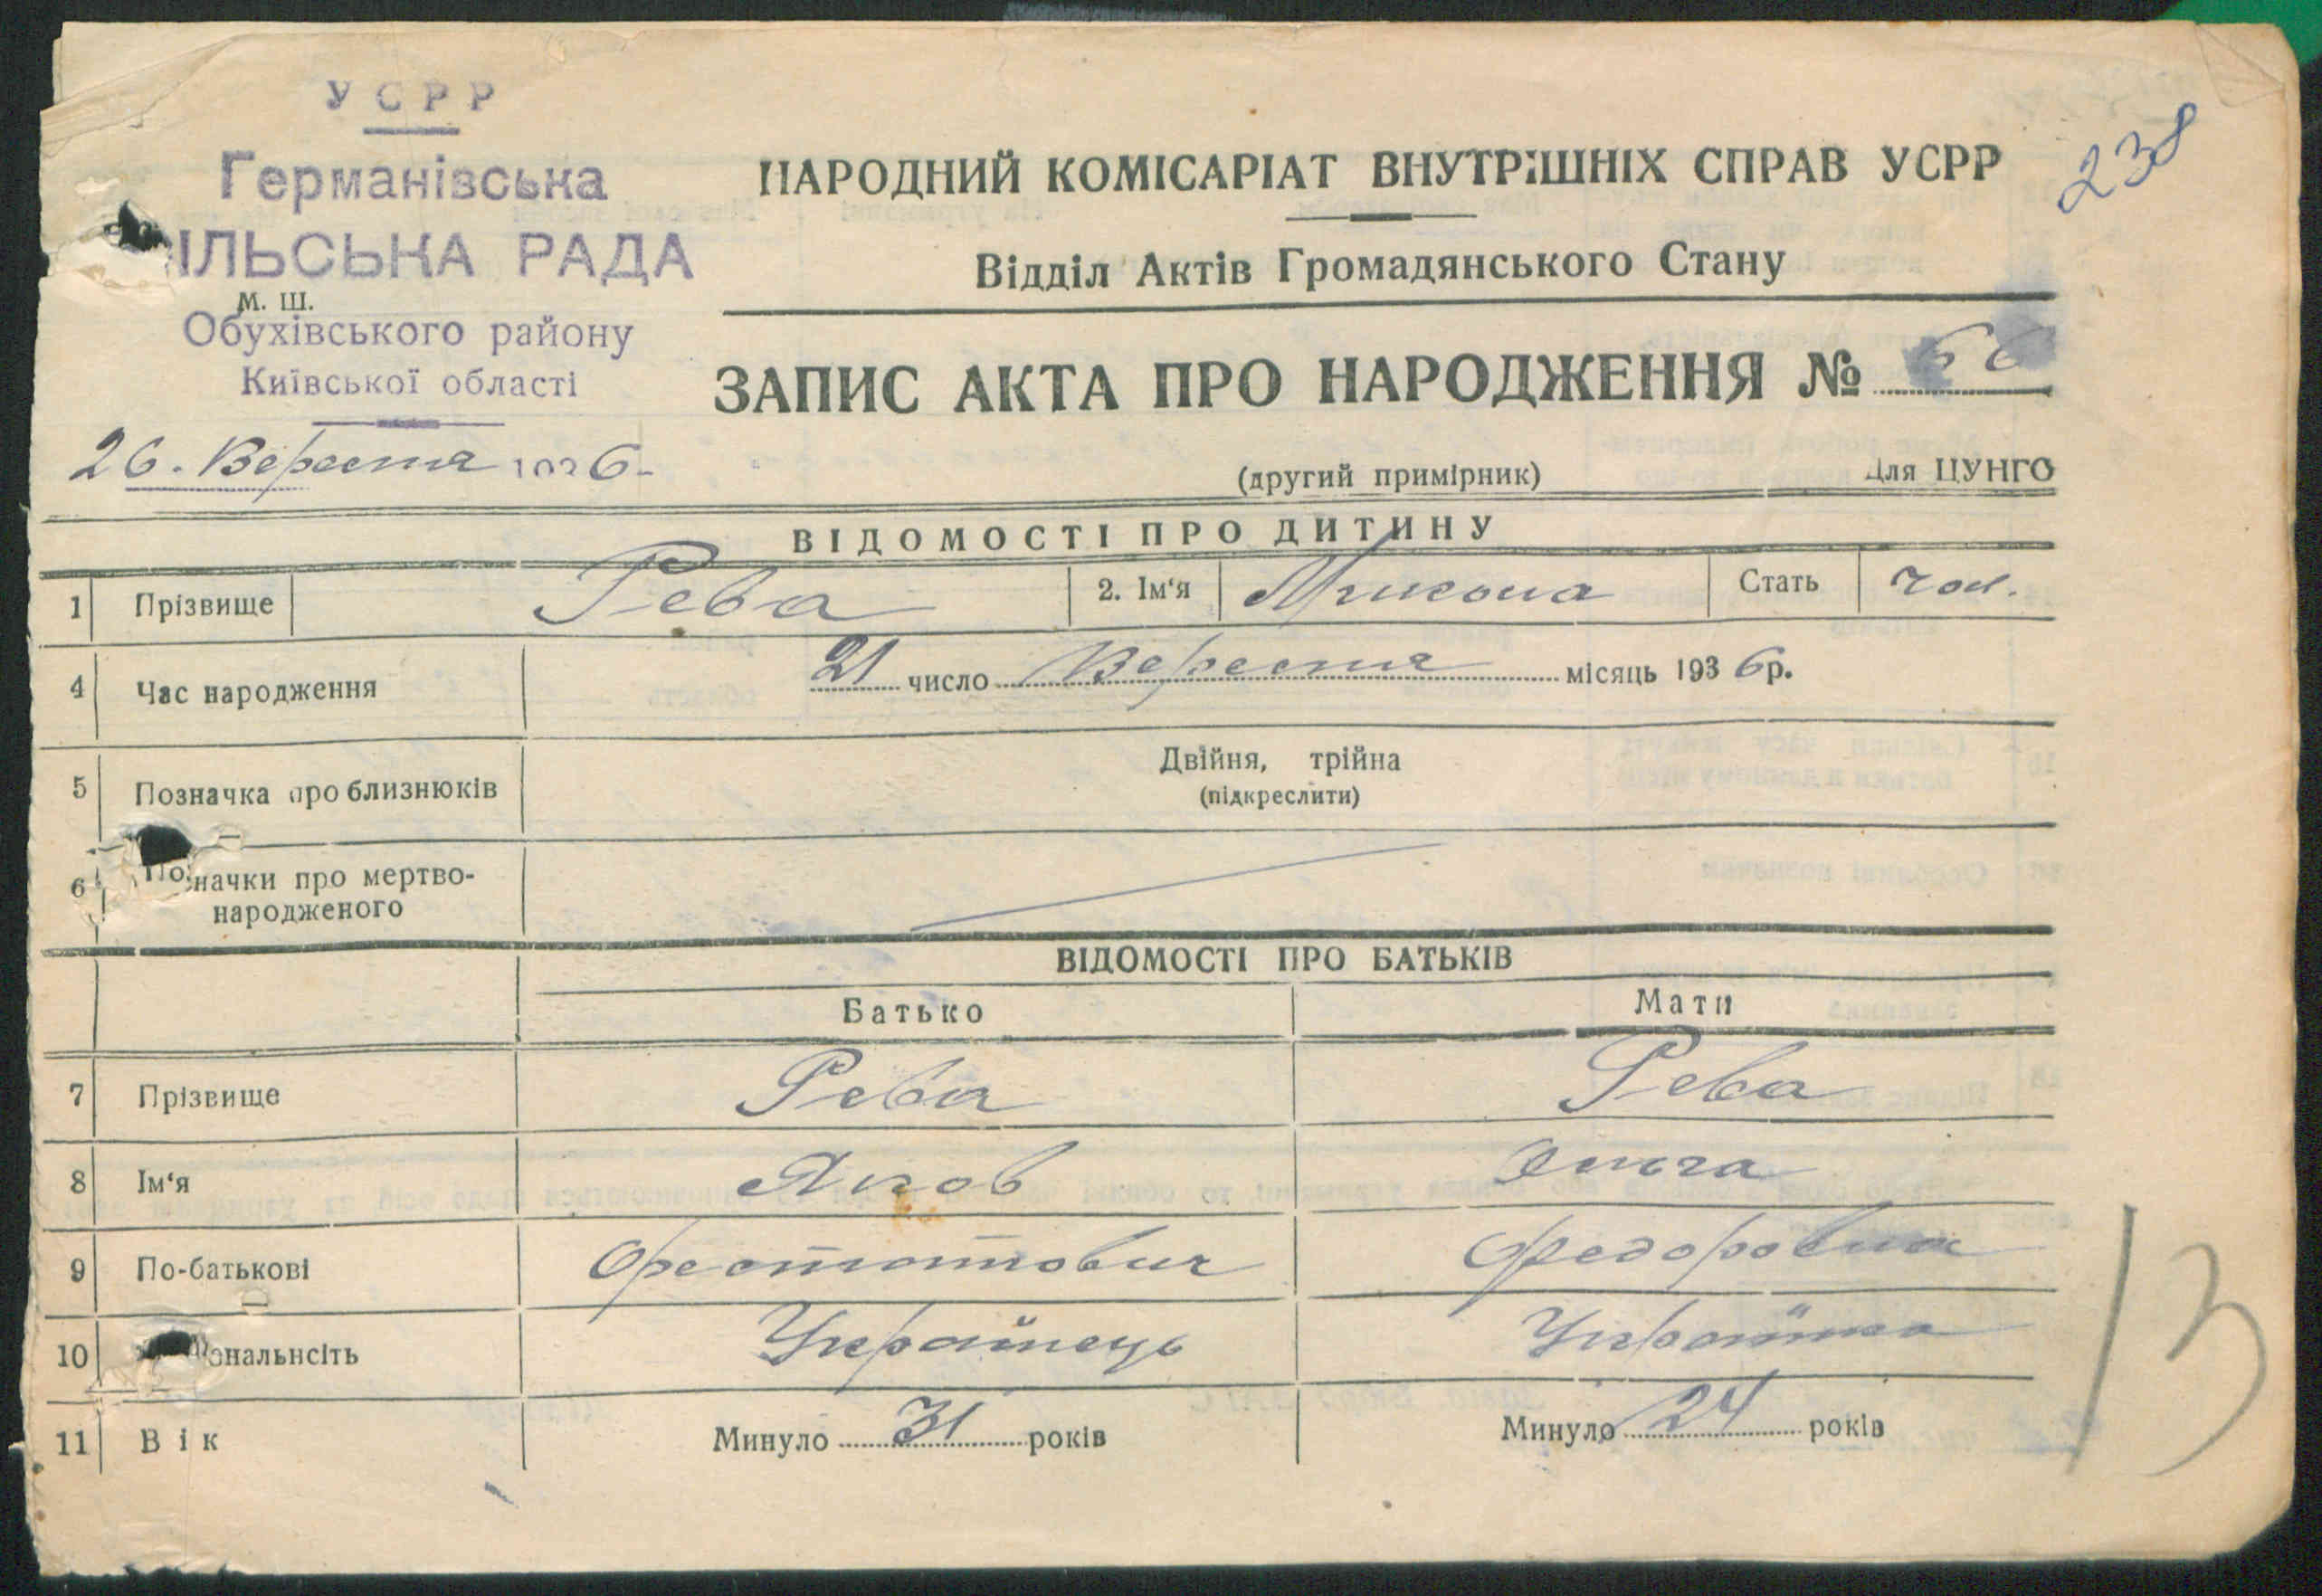 УСРР
Германівська
ІЛЬСЬКА РАДА
м. ш.
Обухівського району
Київської області
26. Вересня 1936
НАРОДНИЙ КОМІСАРІАТ ВНУТРІШНІХ СПРАВ УСРР
238
Відділ Актів Громадянського Стану
ЗАПИС АКТА ПРО НАРОДЖЕННЯ № 66
(другий примірник) Для ЦУНГО
ВІДОМОСТІ ПРО ДИТИНУ
1 Прізвище Рева 2. Ім'я Микола Стать чол.
4 Час народження 21 число Вересня місяць 1936 р.
5 Позначка про близнюків Двійня, трійна
(підкреслити)
6 Позначки про мертво-
народженого
ВІДОМОСТІ ПРО БАТЬКІВ
Батько Мати
7 Прізвище Рева Рева
8 Ім'я Яков Ольга
9 По-батькові Федоровна
10 ональнсіть Українець Українка
11 Вік Минуло 31 років Минуло 24 років
13